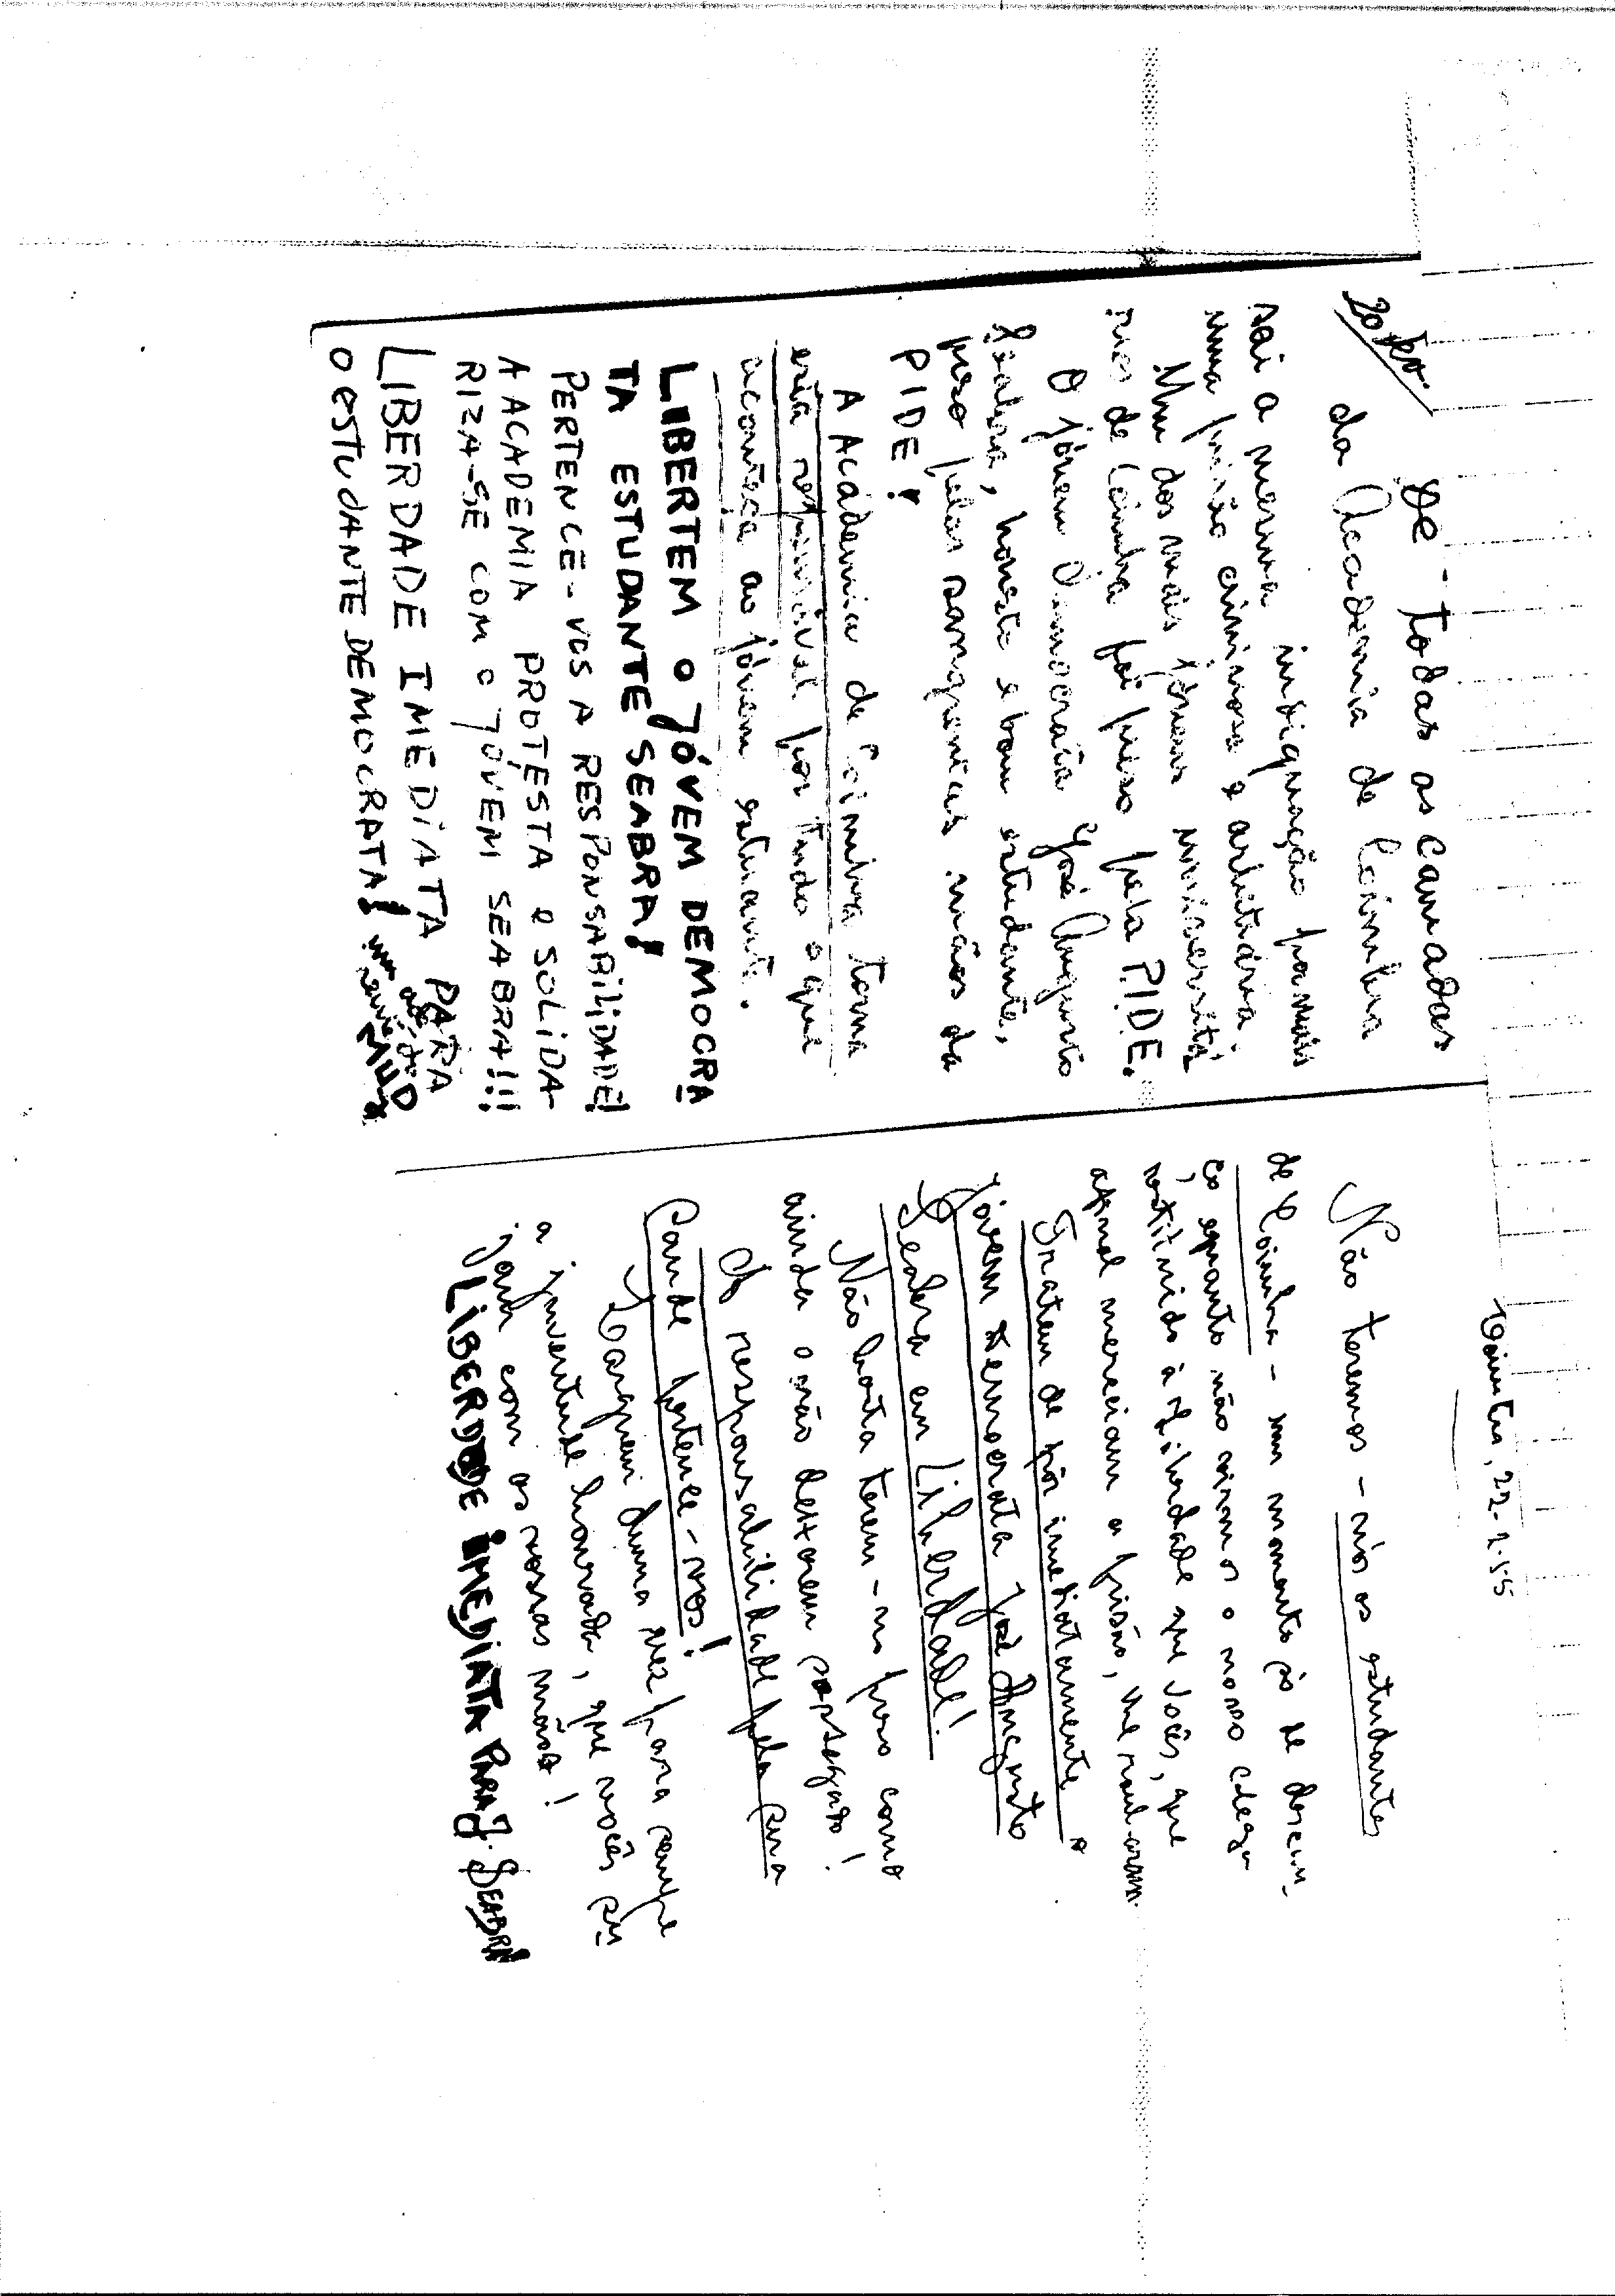 20 
De - todas as camadas
da Academia de Coimbra
sai a mesma indignação para mais
uma prisão criminosa e arbitrária.
Mum dos mais jóvens universitá
rios de Coimbra foi preso pela P.I.D.E.
O jóvem Democrata José Augusto
Seabra, honesto e bom estudante,
preso pelas sangrentas mãos da
PIDE!
A Academia de Coimbra torna
esta responsável por tudo o que
aconteça ao jóvem estudante.
LIBERTEM O JÓVEM DEMOCRA
TA ESTUDANTE SEABRA!
PERTENCE-VOS A RESPONSABILIDADE!
A ACADEMIA PROTESTA e SOLIDA-
RIZA-SE COM O JÓVEM SEABRA!!!
LIBERDADE IMEDIATA PARA
O ESTUDANTE DEMOCRATA!
MUD
Coimbra, 22-1-55
Não teremos - nós os estudantes
de Coimbra - um momento só de descan-
ço equanto não virmos o nosso colega
restituido à liberdade que vocês, que
afinal mereciam a prisão, lhe roubaram.
Tratem de pôr imediatamente o
jóvem Democrata José Augusto
Seabra em Liberdade!
Não basta terem-no preso como
ainda o não deixarem sossegado!
A responsabilidade pela sua
saude pertence-vos!
Larguem duma vez para sempre
a juventude honrada, que vocês
jam com as vossas mãos!
LIBERDADE IMEDIATA PARA J. SEABRA!